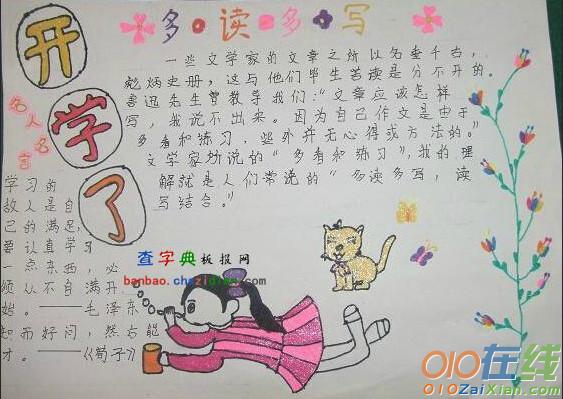 开学了
多·读·多·写
一些文学家的文章之所以名垂千古，
彪炳史册，这与他们毕生苦读是分不开的。
鲁迅先生曾教导我们："文章应该怎样
写，我说不出来。因为自己作文是由于
多看和练习，此外并无心得或方法的。"
文学家所说的"多看和练习"，我的理
解就是人们常说的"多读多写，读
写结合。"
名人名言
学习的
敌人是自
己的满足，
要认真学习
一点东西，必
须从不自满开
始。——毛泽东
知而好问，然后能
才。——《荀子》
查字典板报网
banbao.chazidian.com
010在线
010ZaiXian.com